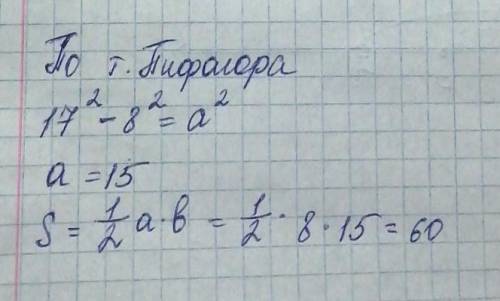 По т. Пифагора
17² - 8² = a²
a = 15
S = 1/2 a · b = 1/2 · 8 · 15 = 60